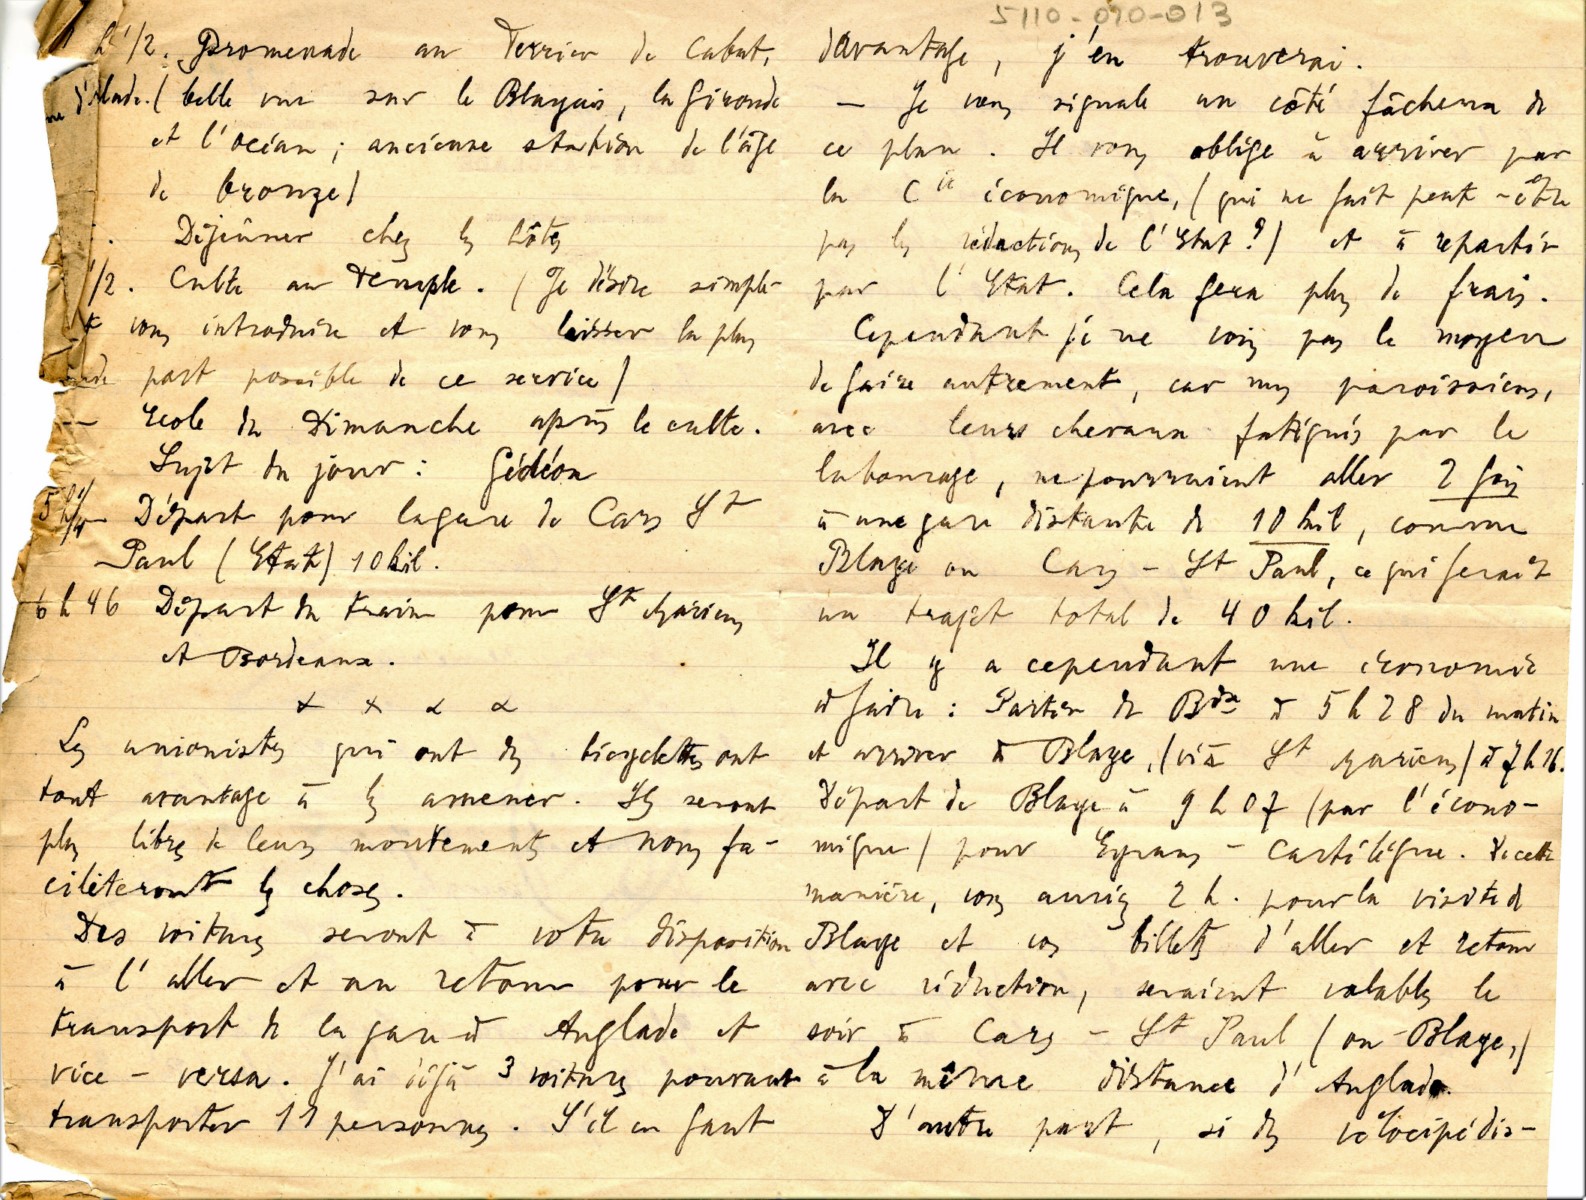 5110-090-013
h 1/2. Promenade au Terrier de Cabut,
(belle vue sur le Blayais, la Gironde
et l'océan ; ancienne station de l'âge
de bronze)
Déjeûner chez les hôtes
1/2. Culte au Temple. (Je désire simple-
vous introduire et vous laisser la plus
part possible de ce service)
— École du Dimanche après le culte.
Sujet du jour : Gédéon
5 h 1/4 Départ pour la gare de Cars St
Paul (Etat) 10 kil.
6 h 46 Départ du train pour St Mariens
et Bordeaux.
x x x x
Les unionistes qui ont des bicyclettes ont
tout avantage à les amener. Ils seront
plus libres de leurs mouvements et nous fa-
ciliteront les choses.
Des voitures seront à votre disposition
à l'aller et au retour pour le
transport de la gare à Anglade et
vice-versa. J'ai déjà 3 voitures pouvant
transporter personnes. S'il en faut
davantage, j'en trouverai.
— Je vous signale un côté fâcheux de
ce plan. Il vous oblige à arriver par
la Cie économique, (qui ne fait peut-être
pas les réductions de l'Etat ?) et à repartir
par l'Etat. Cela fera plus de frais.
Cependant je ne vois pas le moyen
de faire autrement, car mes paroissiens,
avec leurs chevaux fatigués par le
labourage, ne pourraient aller 2 fois
à une gare distante de 10 kil, comme
Blaye ou Cars - St Paul, ce qui ferait
un trajet total de 40 kil.
Il y a cependant une économie
à faire : Partir de Bdx à 5 h 28 du matin
et arriver à Blaye, (viâ St Mariens) à 7 h 16.
Départ de Blaye à 9 h 07 (par l'écono-
mique) pour Eyrans - Cartelègue. De cette
manière, vous auriez 2 h. pour la visite de
Blaye et vos billets d'aller et retour
avec réduction, seraient valables le
soir à Cars - St Paul (ou Blaye,)
à la même distance d'Anglade.
D'autre part, si des vélocipédis-